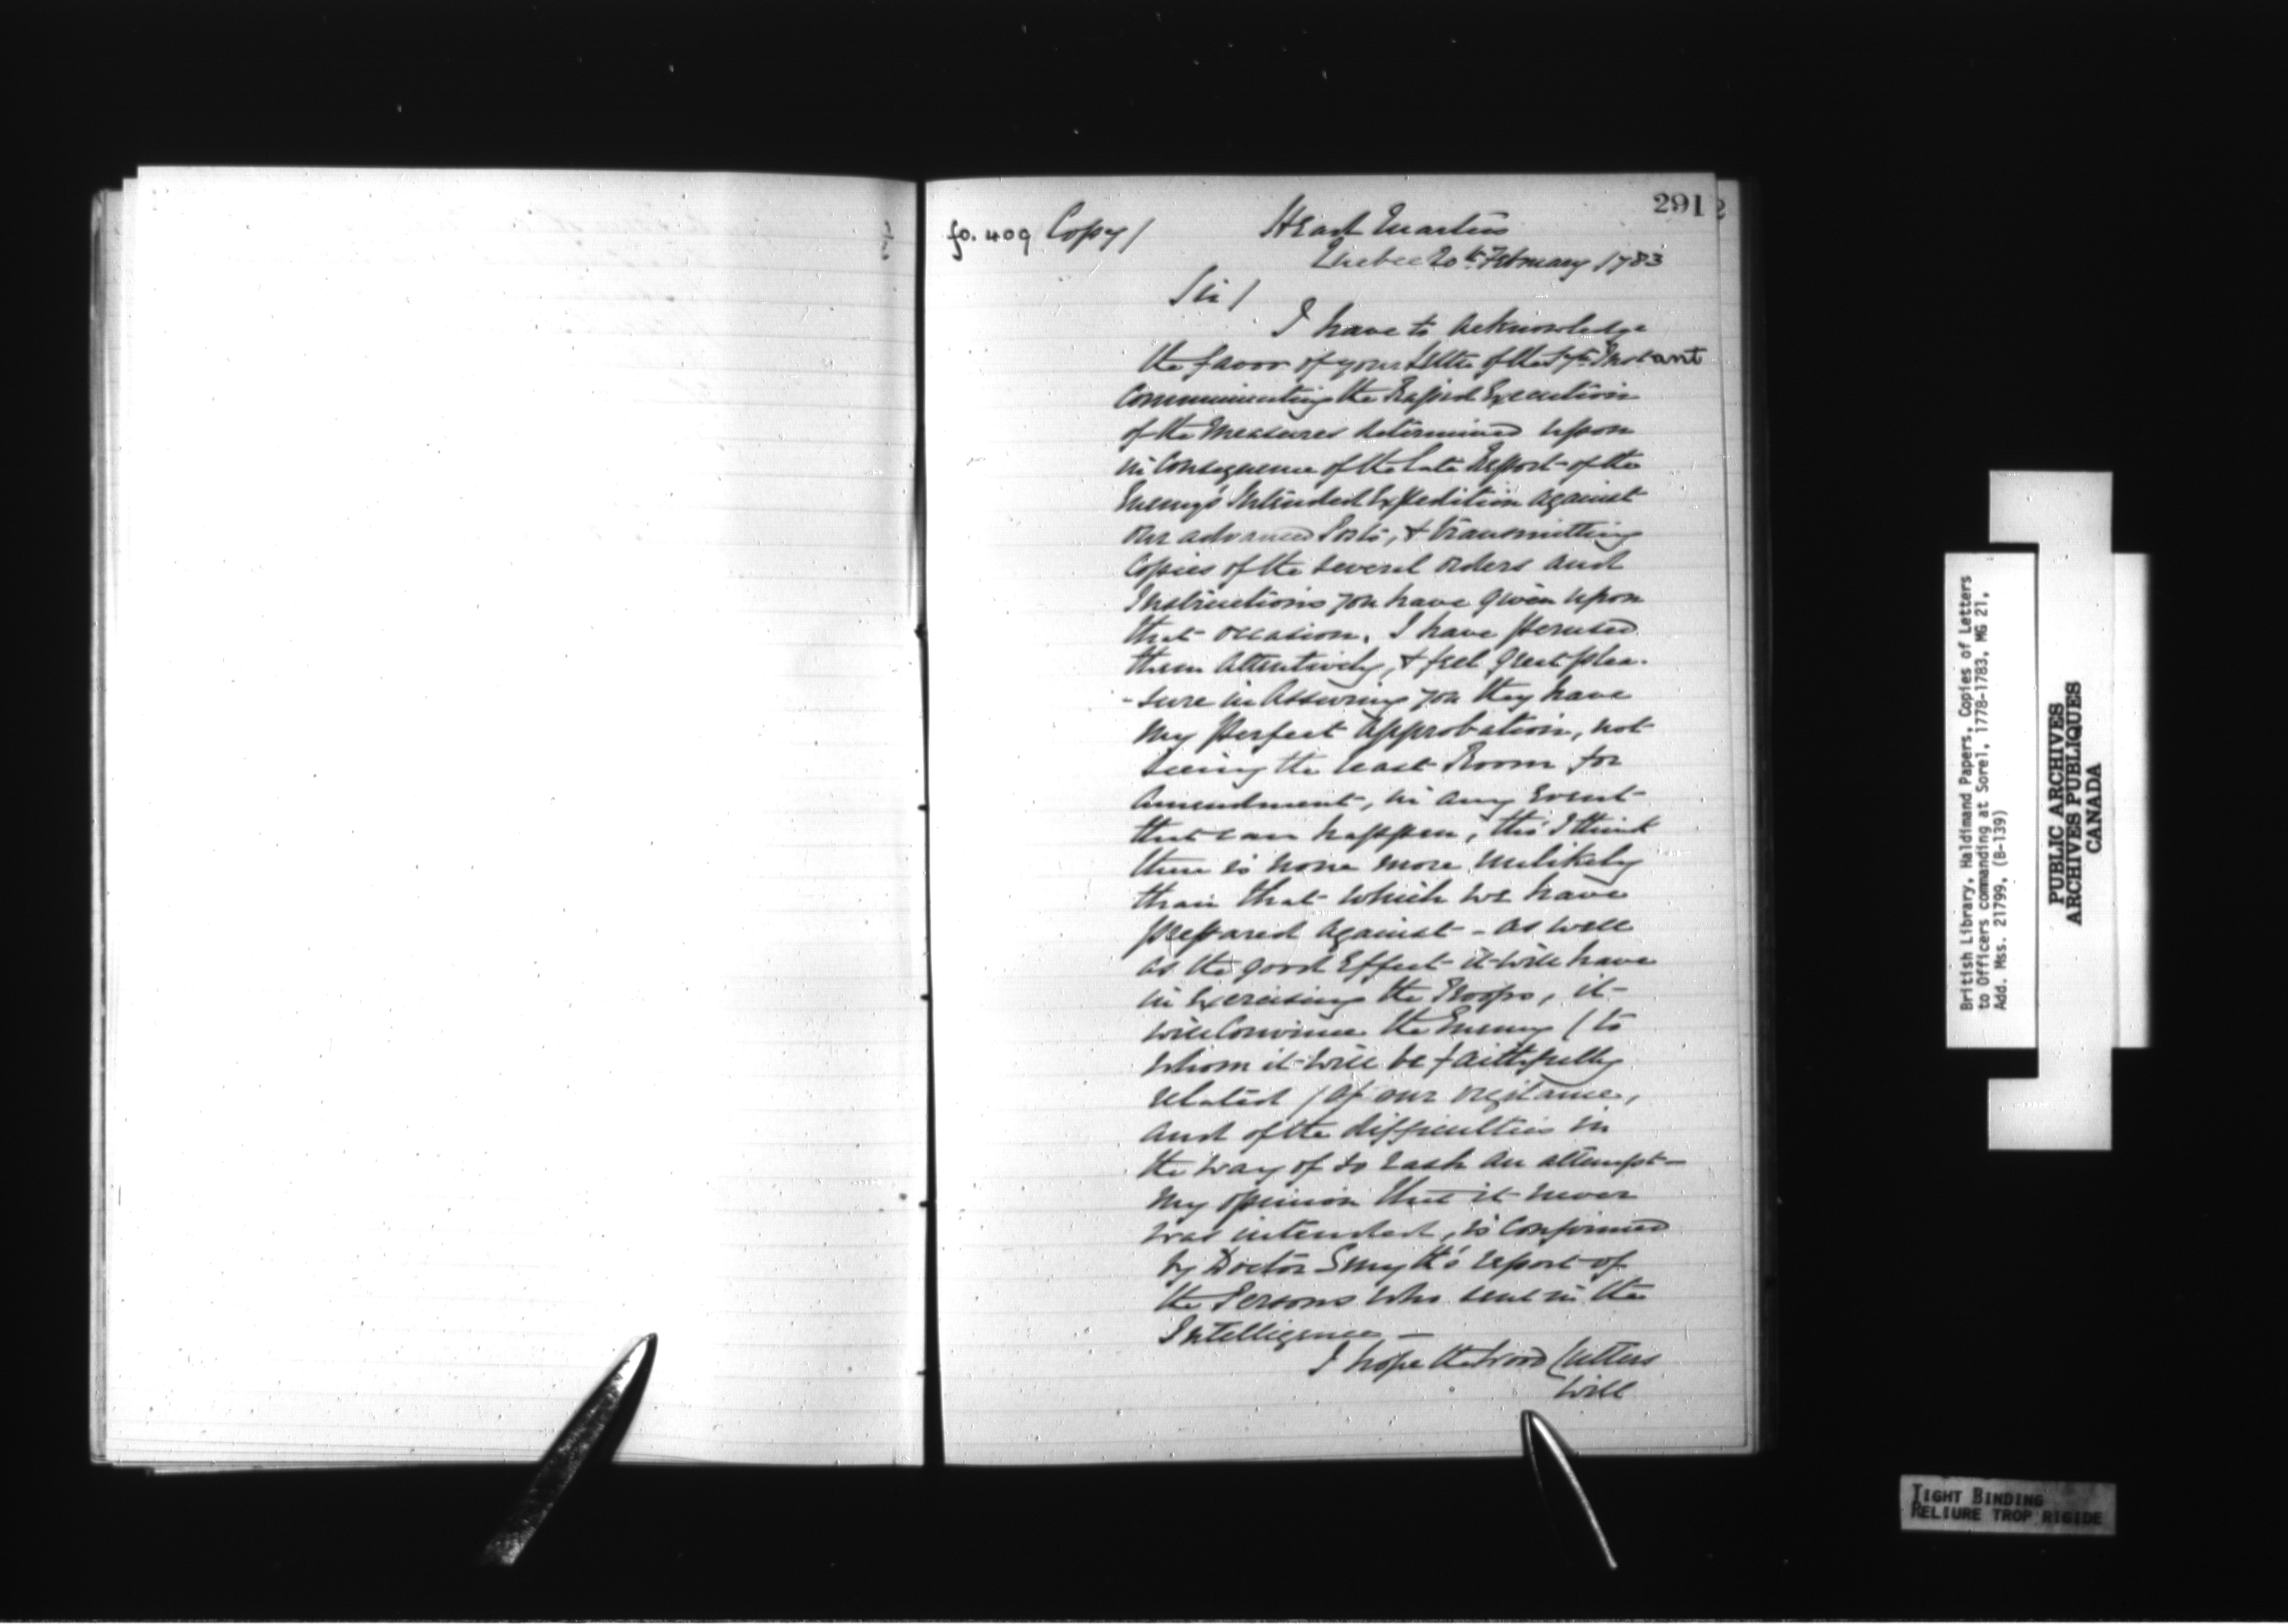 291
fo. 409 Copy/ Head Quarters
Quebec 20th February 1783
Sir/
I have to acknowledge
the favor of your Letter of the Instant
Communicating the Rapid Execution
of the Measures determined upon
in Consequence of the late Report of the
Enemy's Intended Expedition against
our advanced Posts, & transmitting
Copies of the several orders and
Instructions you have given upon
that occasion. I have perused
them attentively, & feel great plea-
-sure in Assuring you they have
my perfect approbation, not
seeing the least Room for
Amendment, in any Event
that can happen, tho' I think
there is none more unlikely
than that which we have
prepared against - as well
as the good Effect it will have
in Exercising the Troops, it
will Convince the Enemy (to
whom it will be faithfully
related) of our vigilance,
and of the difficulties in
the way of so rash an attempt -
my opinion that it never
was intended, is Confirmed
by Doctor Smyth's report of
the Persons who sent in the
Intelligence -
I hope the Wood Cutters
will
British Library, Haldimand Papers, Copies of Letters
to Officers commanding at Sorel, 1778-1783, MG 21,
Add. Mss. 21799, (B-139)
PUBLIC ARCHIVES
ARCHIVES PUBLIQUES
CANADA
TIGHT BINDING
RELIURE TROP RIGIDE